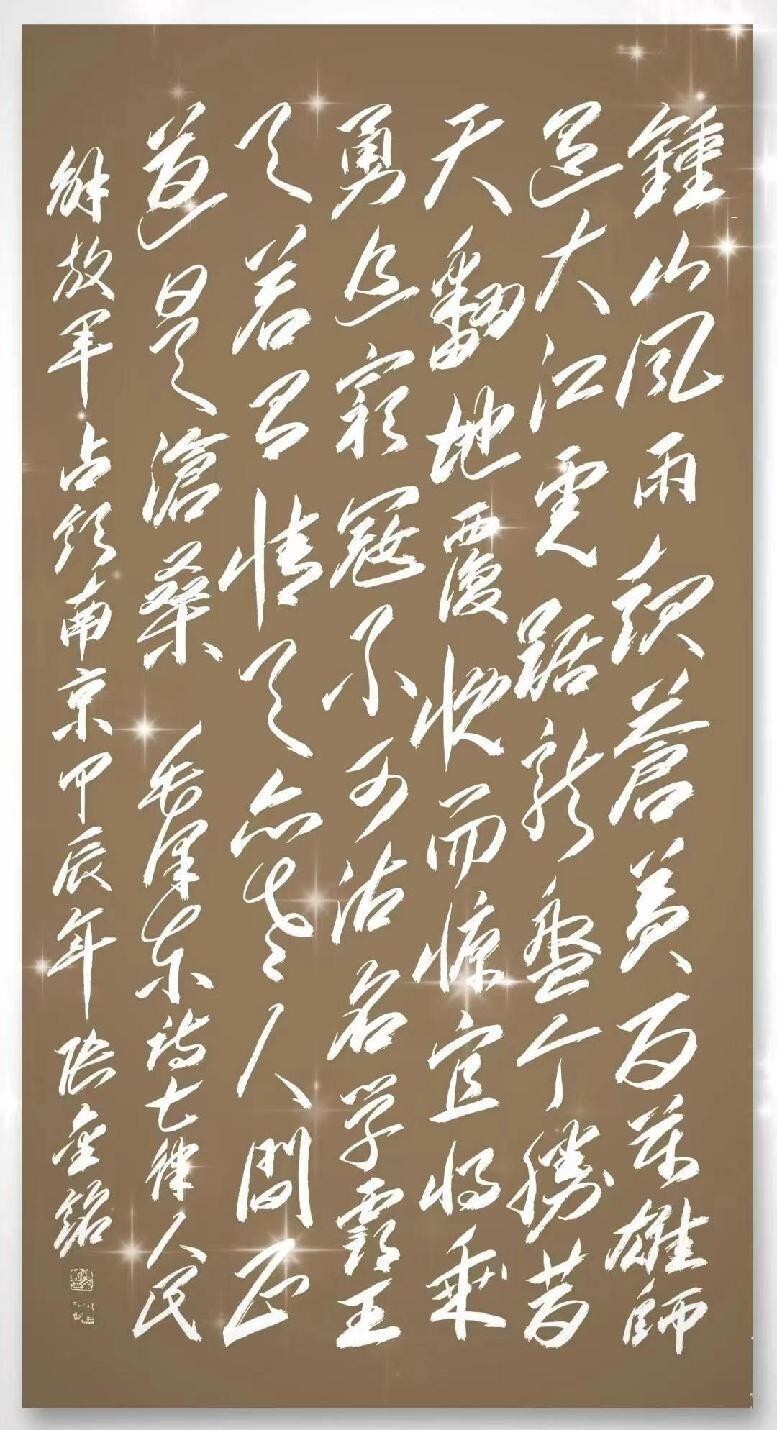 鍾山風雨起蒼黃百萬雄師
過大江虎踞龍盤今勝昔
天翻地覆慨而慷宜將乘
勇追窮寇不可沽名學霸王
天若有情天亦老人間正
道是滄桑 毛澤東詩七律人民
解放軍占領南京甲辰年張金銘